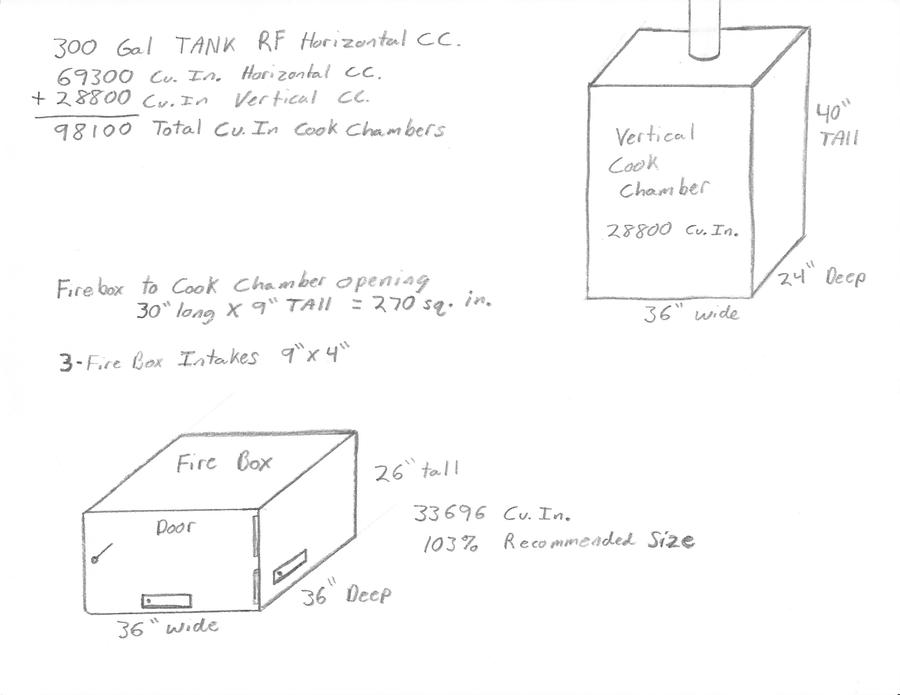 300 Gal TANK RF Horizontal C.C.
69300 Cu. In. Horizontal CC.
+ 28800 Cu. In Vertical CC.
98100 Total Cu. In Cook Chambers
40" TAll
Vertical
Cook
Chamber
28800 Cu. In.
24" Deep
36" wide
Firebox to Cook Chamber opening
30" long X 9" TAll = 270 sq. in.
3-Fire Box Intakes 9"x 4"
Fire Box
26" tall
Door
33696 Cu. In.
103% Recommended Size
36" Deep
36" wide